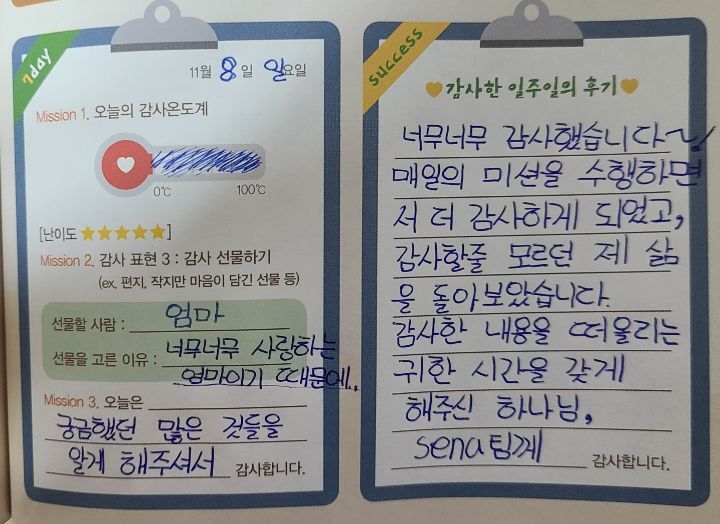 7day
11월 8일 일요일
Mission 1. 오늘의 감사온도계
0℃ 100℃
[난이도 ★★★★★]
Mission 2. 감사 표현 3 : 감사 선물하기
(ex. 편지, 작지만 마음이 담긴 선물 등)
선물할 사람 : 엄마
선물을 고른 이유 : 너무너무 사랑하는
엄마이기 때문에.
Mission 3. 오늘은
궁금했던 많은 것들을
알게 해주셔서 감사합니다.
success
감사한 일주일의 후기
너무너무 감사했습니다~!
매일의 미션을 수행하면
서 더 감사하게 되었고,
감사할줄 모르던 제 삶
을 돌아보았습니다.
감사한 내용을 떠올리는
귀한 시간을 갖게
해주신 하나님,
sena팀께 감사합니다.